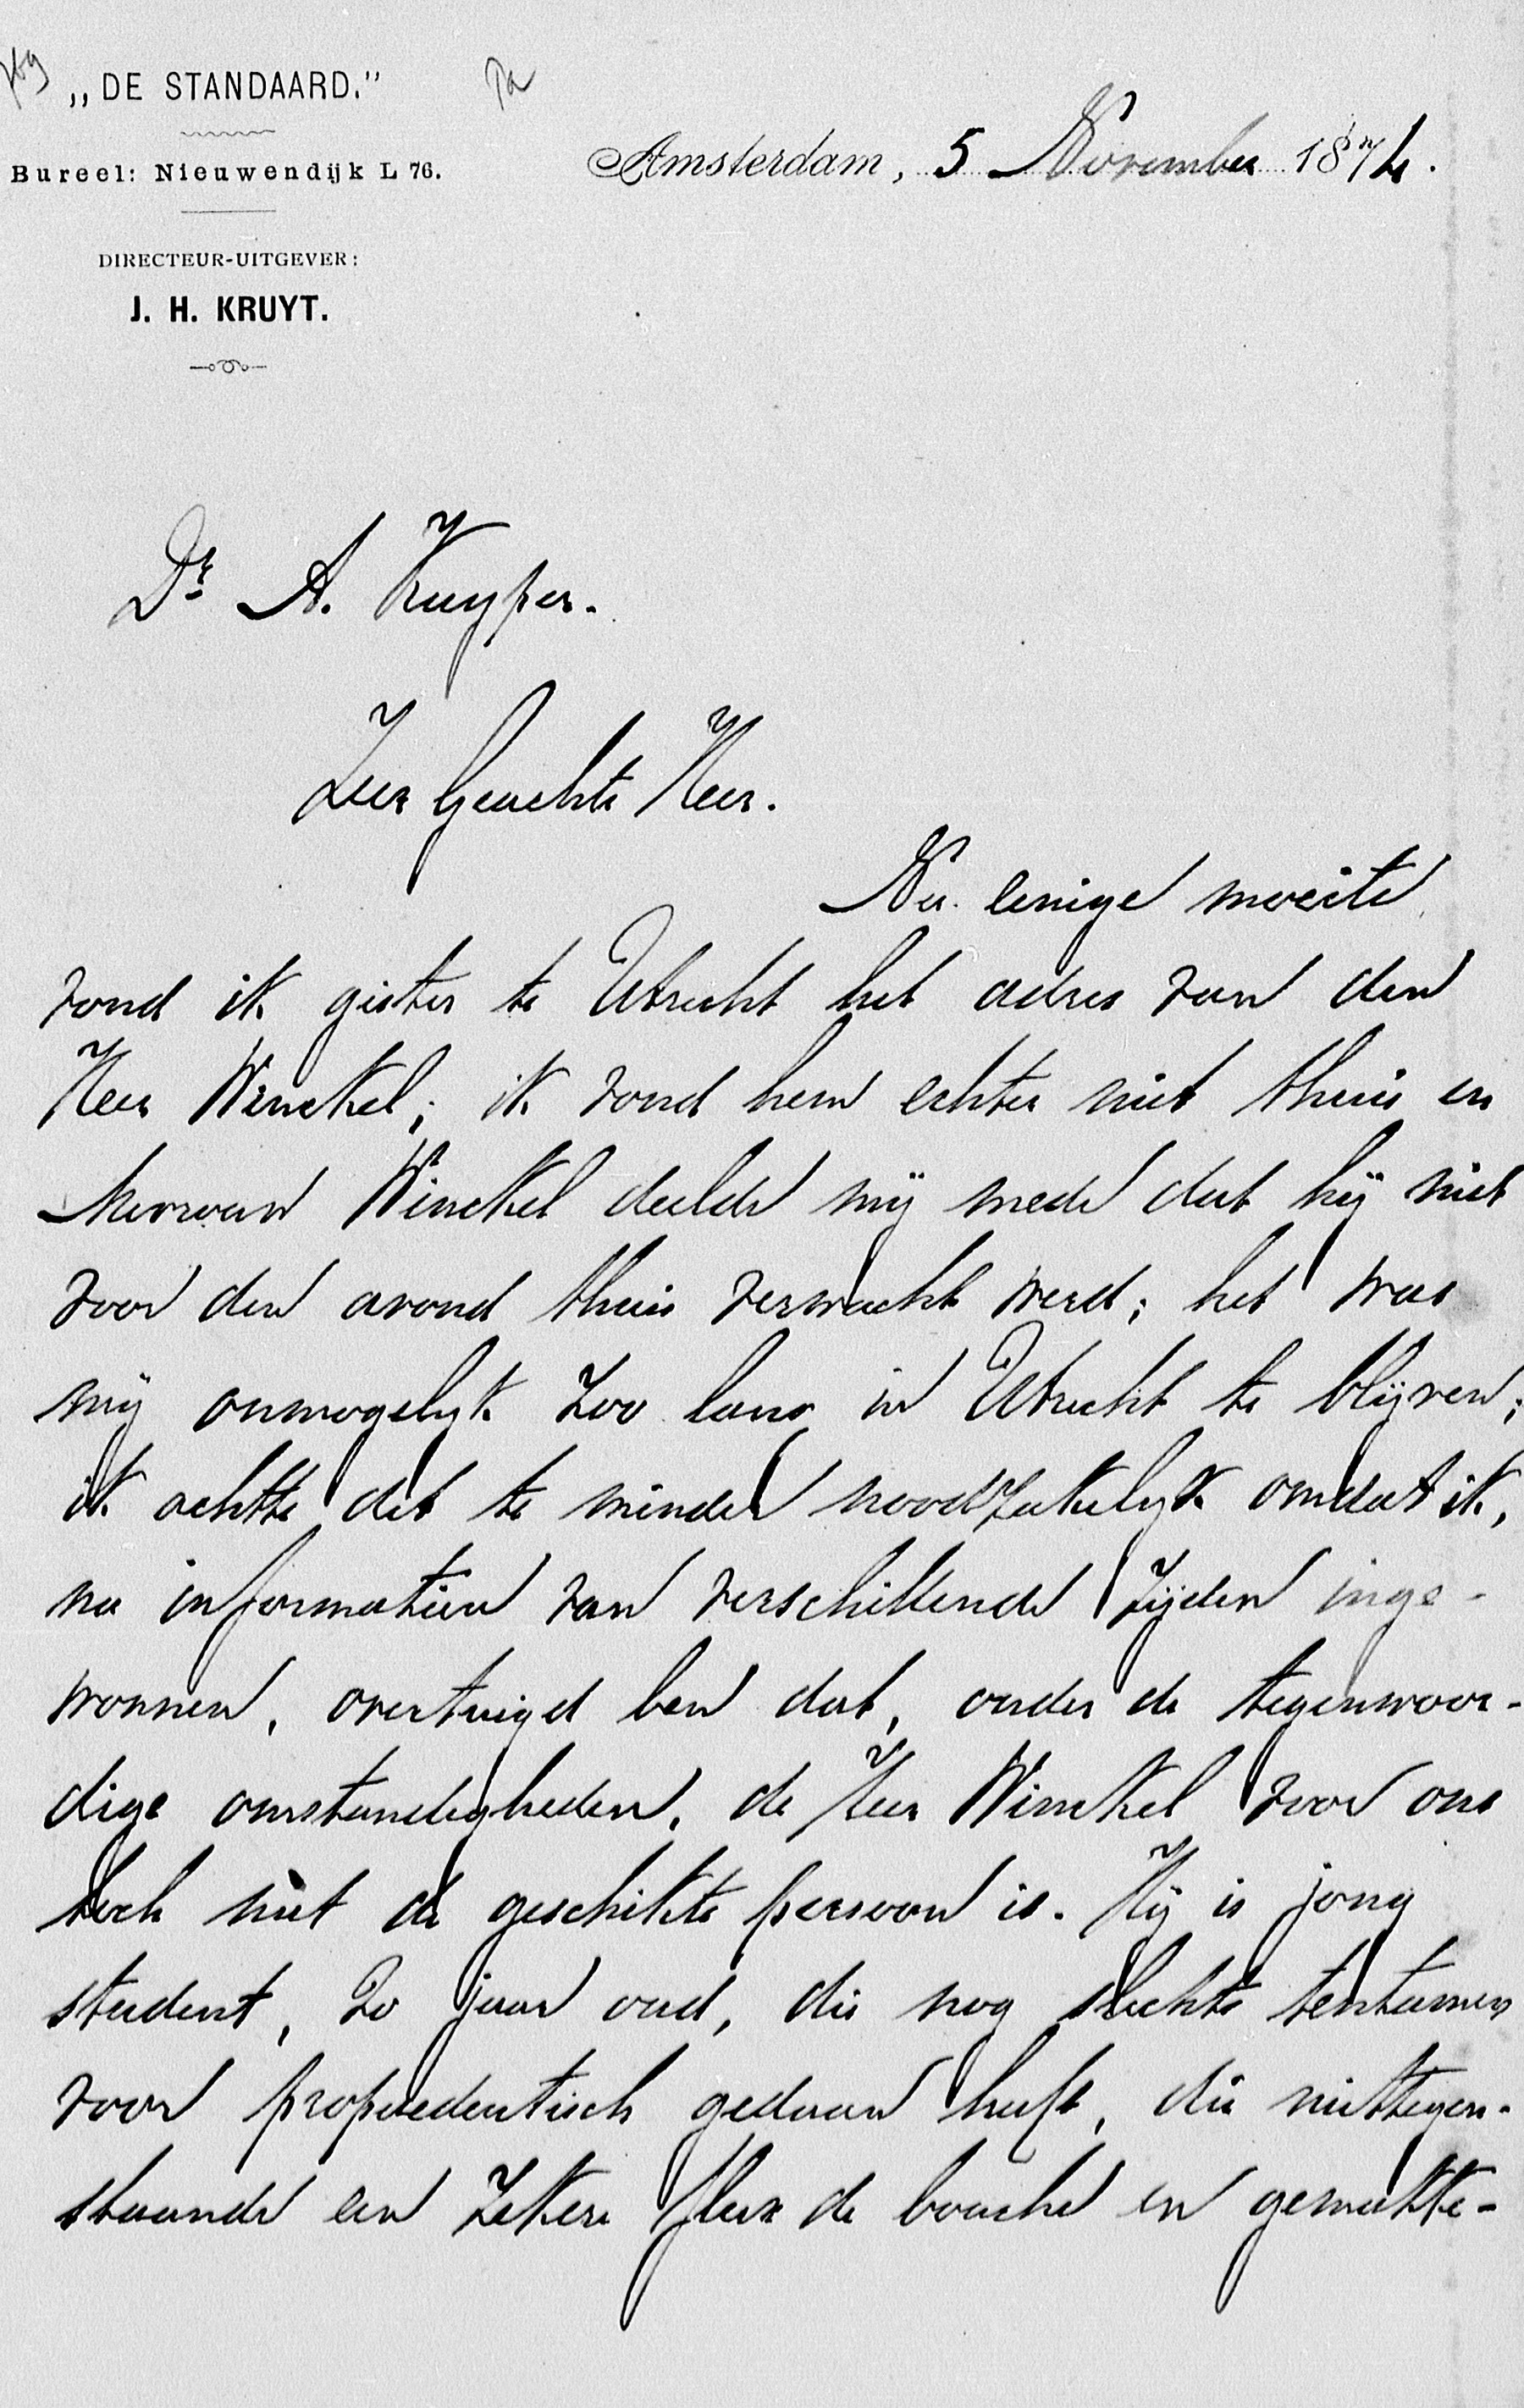 „DE STANDAARD."
Bureel: Nieuwendijk L 76.
DIRECTEUR-UITGEVER:
J. H. KRUYT.
Amsterdam, 5 November 1874.
Dr A. Kuyper.
Zeer Geachte Heer.
Na eenige moeite
vond ik gister te Utrecht het adres van den
Heer Winckel; ik vond hem echter niet thuis en
Mevrouw Winckel deelde mij mede dat hij niet
voor den avond thuis verwacht werd; het was
mij onmogelijk zoo lang in Utrecht te blijven;
ik achtte dit te minder noodzakelijk omdat ik,
na informatien van verschillende zijden inge-
wonnen, overtuigd ben dat, onder de tegenwoor-
dige omstandigheden, de Heer Winckel voor ons
toch niet de geschikte persoon is. Hij is jong
student, 20 jaar oud, die nog slechts tentamen
voor propaedeutisch gedaan heeft, die niettegen-
staande een zekere fleux de bouche en gemakke-